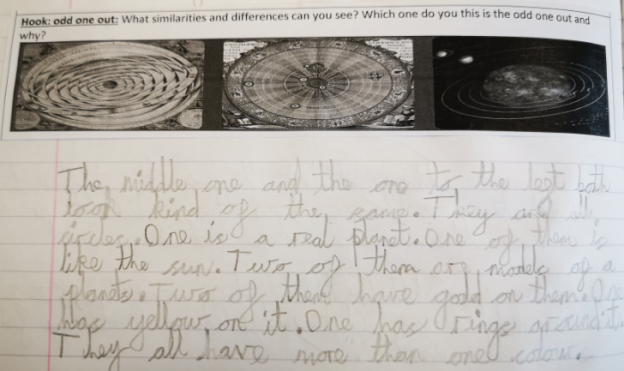 Hook: odd one out: What similarities and differences can you see? Which one do you this is the odd one out and
why?
The middle one and the one to the left both
look kind of the same. They are all
circles. One is a real planet. One of them is
like the sun. Two of them are models of a
planets. Two of them have gold on them. One
has yellow on it. One has rings around it.
They all have more than one colour.